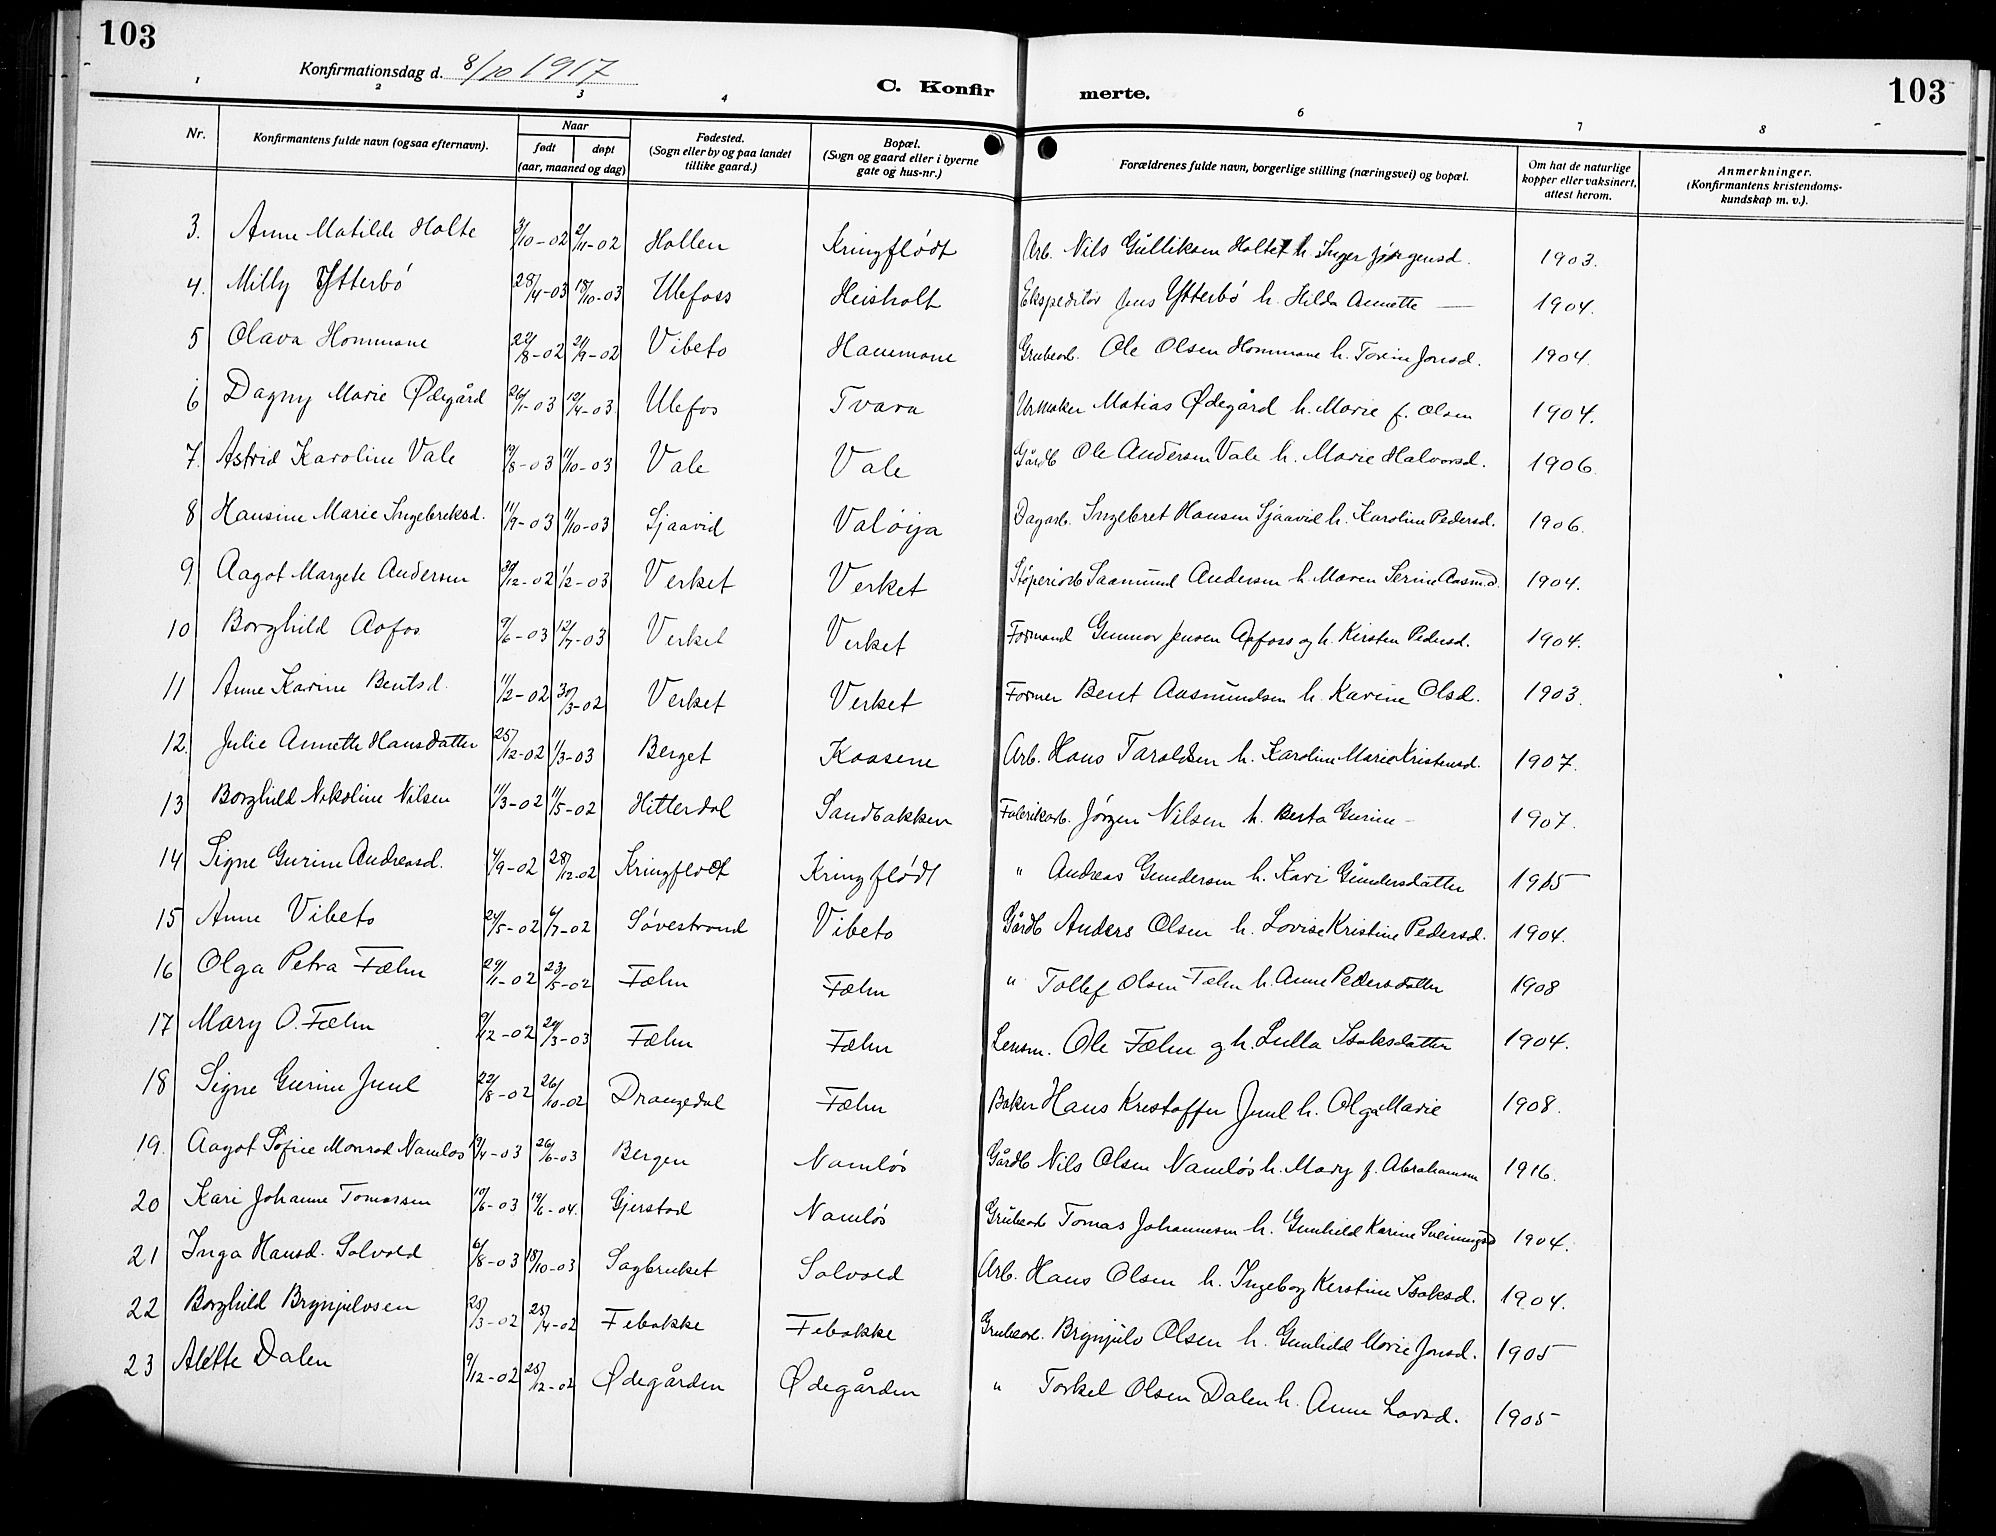 103
Konfirmationsdag d. 8/10 1917
C. Konfir merte.
103
1 2 3 4 6 7 8
Nr.
Konfirmantens fulde navn (ogsaa efternavn).
Naar
født døpt
(aar, maaned og dag)
Fødested.
(Sogn eller by og paa landet
tillike gaard.)
Bopæl.
(Sogn og gaard eller i byerne
gate og hus-nr.)
Forældrenes fulde navn, borgerlige stilling (næringsvei) og bopæl.
Om hat de naturlige
kopper eller vaksinert,
attest herom.
Anmerkninger.
(Konfirmantens kristendoms-
kundskap m. v.).
3. Anne Matilde Holte 3/10-02 2/11-02 Hollen Kringflødt Arb. Nils Gulliksen Holte h. Inger Jørgensd. 1903.
4. Milly Ytterbó 28/4-03 18/10-03 Ulefoss Heisholt Ekspeditór Jens Ytterbó h. Hilda Annette — 1904.
5 Olava Hommane 22/8-02 21/9-02 Vibeto Hammane Grubearb. Ole Olsen Hommane h. Torine Jonsd. 1904.
6 Dagny Marie Ødegård 26/1-03 12/4-03. Ulefos Tvara Urmaker Matias Ødegård h. Marie f. Olsen 1904.
7. Astrid Karoline Vale 19/8-03 11/10-03 Vale Vale Gårdb Ole Andersen Vale h. Marie Halvorsd. 1906.
8 Hansine Marie Ingebrektsd. 11/9-03 11/10-03 Sjaavid Valøija Dagarb. Ingebret Hansen Sjaavid h. Karoline Pedersd. 1906.
9 Aagot Margete Andersen 30/12-02 1/2-03 Verket Verket Støperiarb Saamund Andersen h. Maren Serine Aasm.d. 1904.
10 Borghild Aafos 9/6-03 12/7-03 Verket Verket Formand Gunnar Jensen Aafoss og h. Kirsten Pedersd. 1904.
11 Anne Karine Bentsd. 11/2-02 30/3-02 Verket Verket Former Bent Aasmundsen h. Karine Olsd. 1903.
12. Julie Annette Hansdatter 25/12-02 1/3-03 Berget Kaasene Arb. Hans Taraldsen h. Karoline Marie Kristensd. 1907.
13 Borghild Nikoline Nilsen 11/3-02 11/5-02 Hitterdal Sandbakken Fabrikarb. Jørgen Nilsen h. Berta Gurine - 1907.
14 Signe Gurine Andreasd. 4/9-02 28/12-02 Kringflødt Kringflødt " Andreas Gundersen h. Kari Gundersdatter 1915
15 Anne Vibeto 24/5-02 6/7-02 Søvestrand Vibeto Gårdb Anders Olsen h. Lovise Kristine Pedersd. 1904.
16 Olga Petra Fæhn 29/1-02 23/5-02 Fæhn Fæhn " Tollef Olsen Fæhn h. Anne Pedersdatter 1908
17 Mary O. Fæhn 9/12-02 29/3-03 Fæhn Fæhn Lensm. Ole Fæhn og h. Lulla Isaksdatter 1904.
18 Signe Gurine Juul 22/8-02 26/10-02 Drangedal Fæhn Baker Hans Kristoffer Juul h. Olga Marie 1908.
19. Aagot Sofie Monrad Namløs 19/4-03 26/6-03 Bergen Namløs Gårdb Nils Olsen Namløs h. Mary f. Abrahamsen 1916.
20 Kari Johanne Tomassen 10/6-03 19/6-04. Gjerstad Namløs Grubearb Tomas Johannesen h. Gunhild Karine Sveinungsd 1904.
21 Inga Hansd. Solvold 6/8-03 18/10-03 Sagbruket Solvold Arb. Hans Olsen h. Ingeborg Kerstine Isaksd. 1904.
22 Borghild Brynjulvsen 25/3-02 25/4-02 Febakke Febakke Grubearb. Brynjulv Olsen h. Gunhild Marie Jonsd. 1905
23 Alette Dalen 9/12-02 25/12-02 Ødegården Ødegården " Torkel Olsen Dalen h. Anne Larsd. 1905